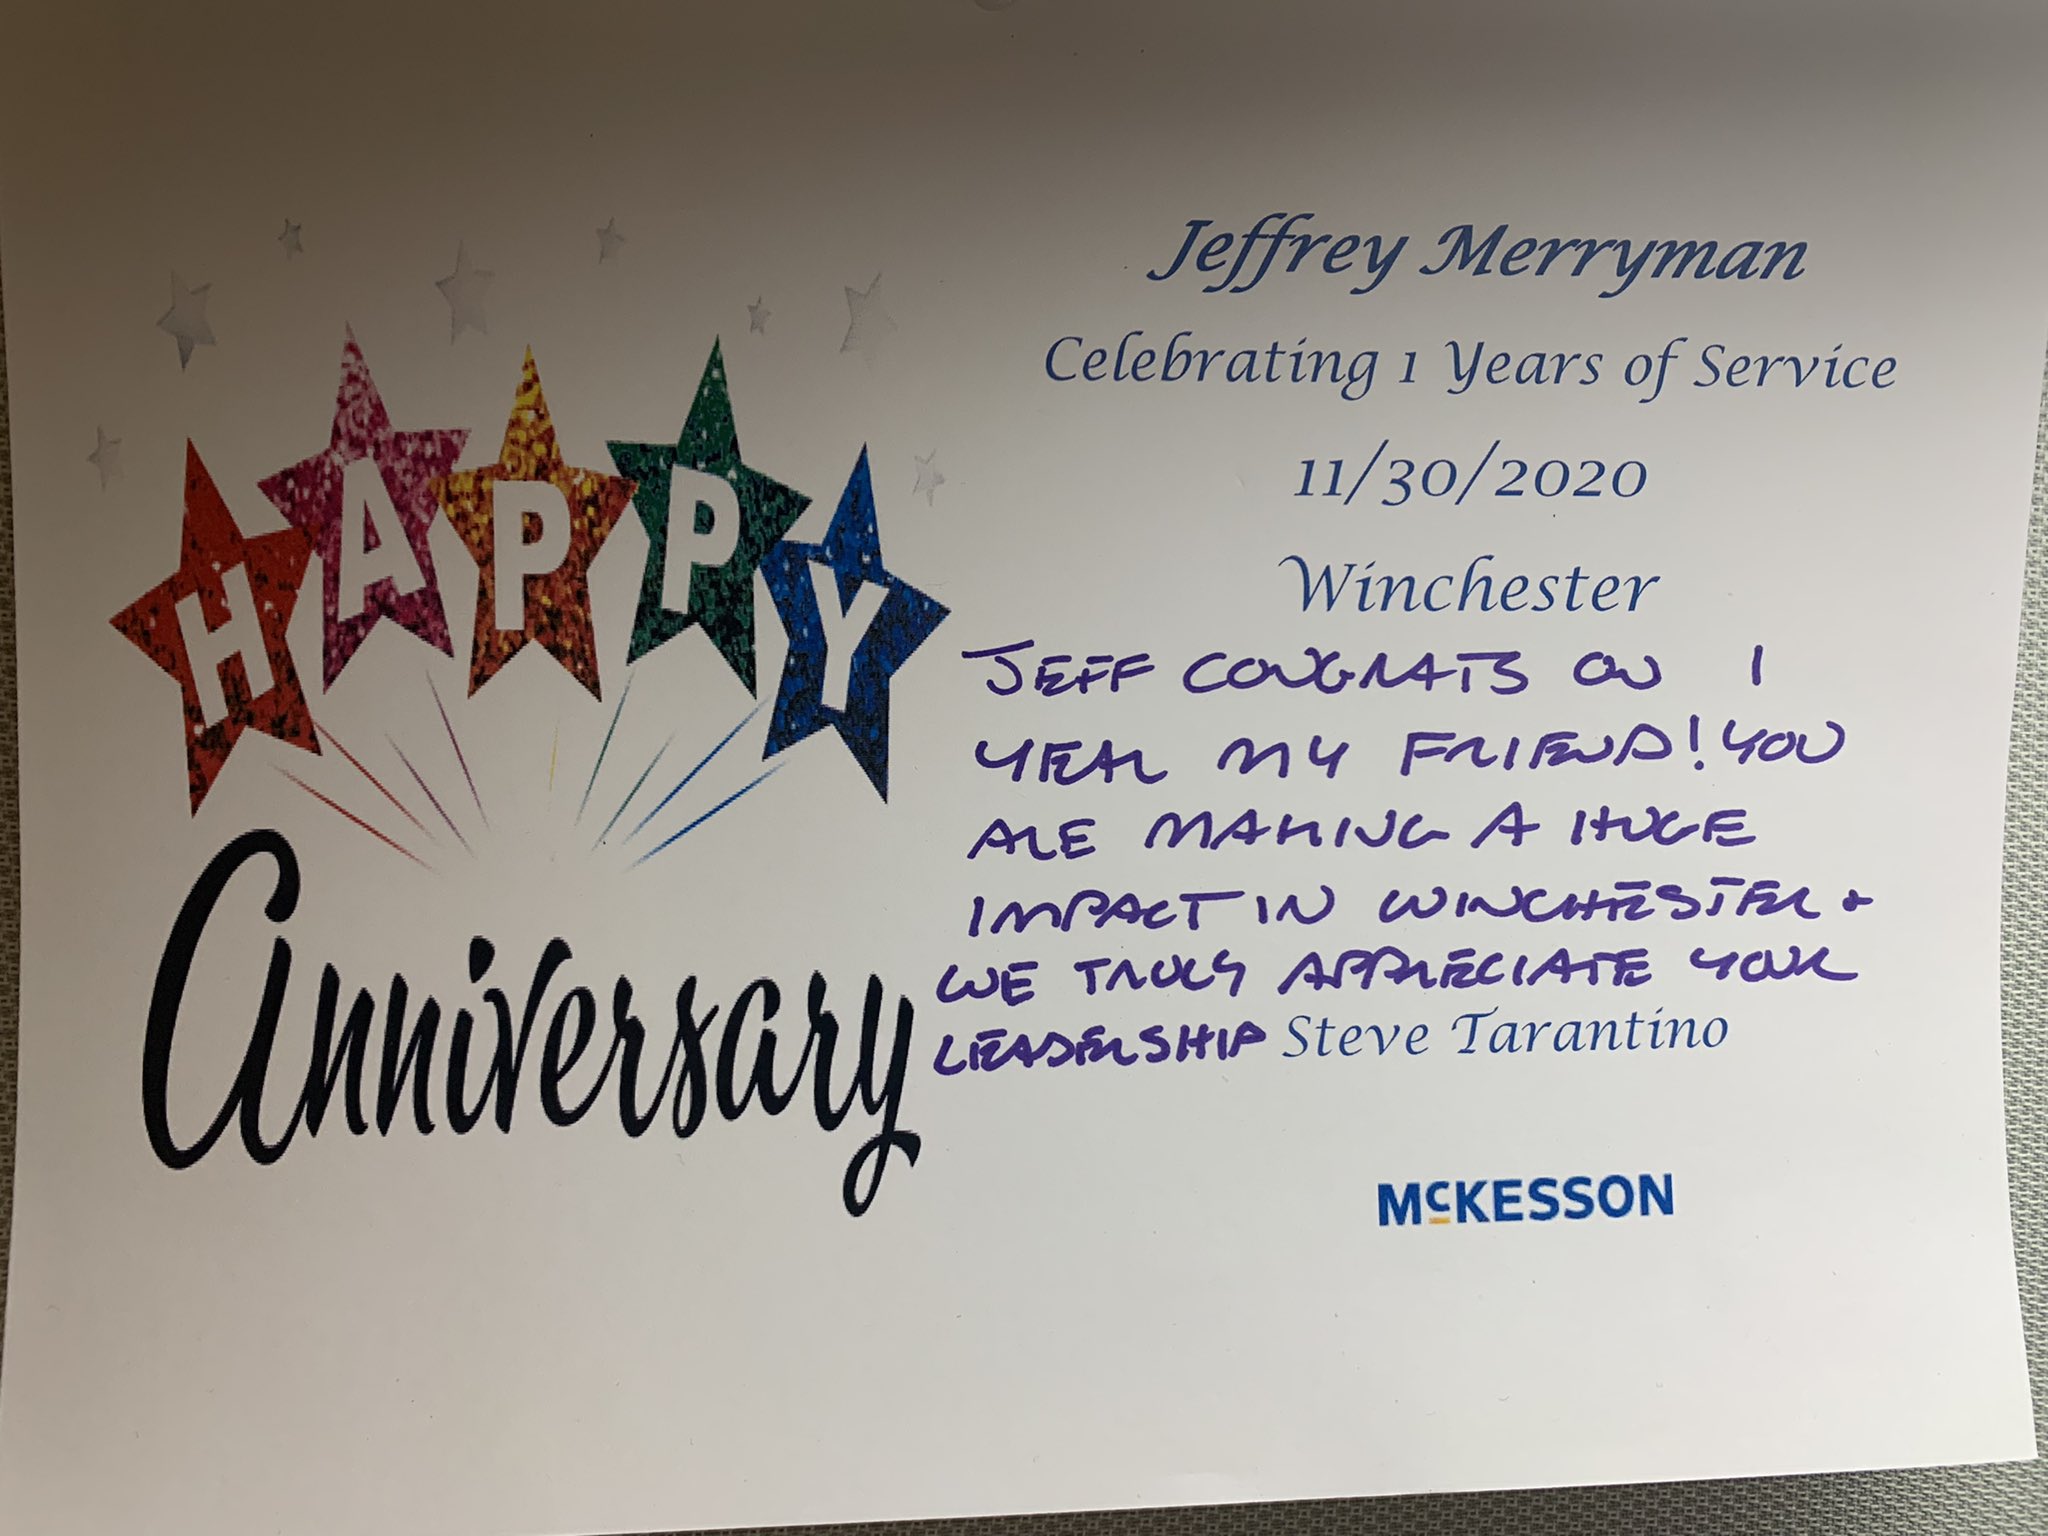 HAPPY
Anniversary
Jeffrey Merryman
Celebrating 1 Years of Service
11/30/2020
Winchester
JEFF CONGRATS ON 1
YEAR MY FRIEND! YOU
ARE MAKING A HUGE
IMPACT IN WINCHESTER +
WE TRULY APPRECIATE YOUR
LEADERSHIP Steve Tarantino
McKESSON